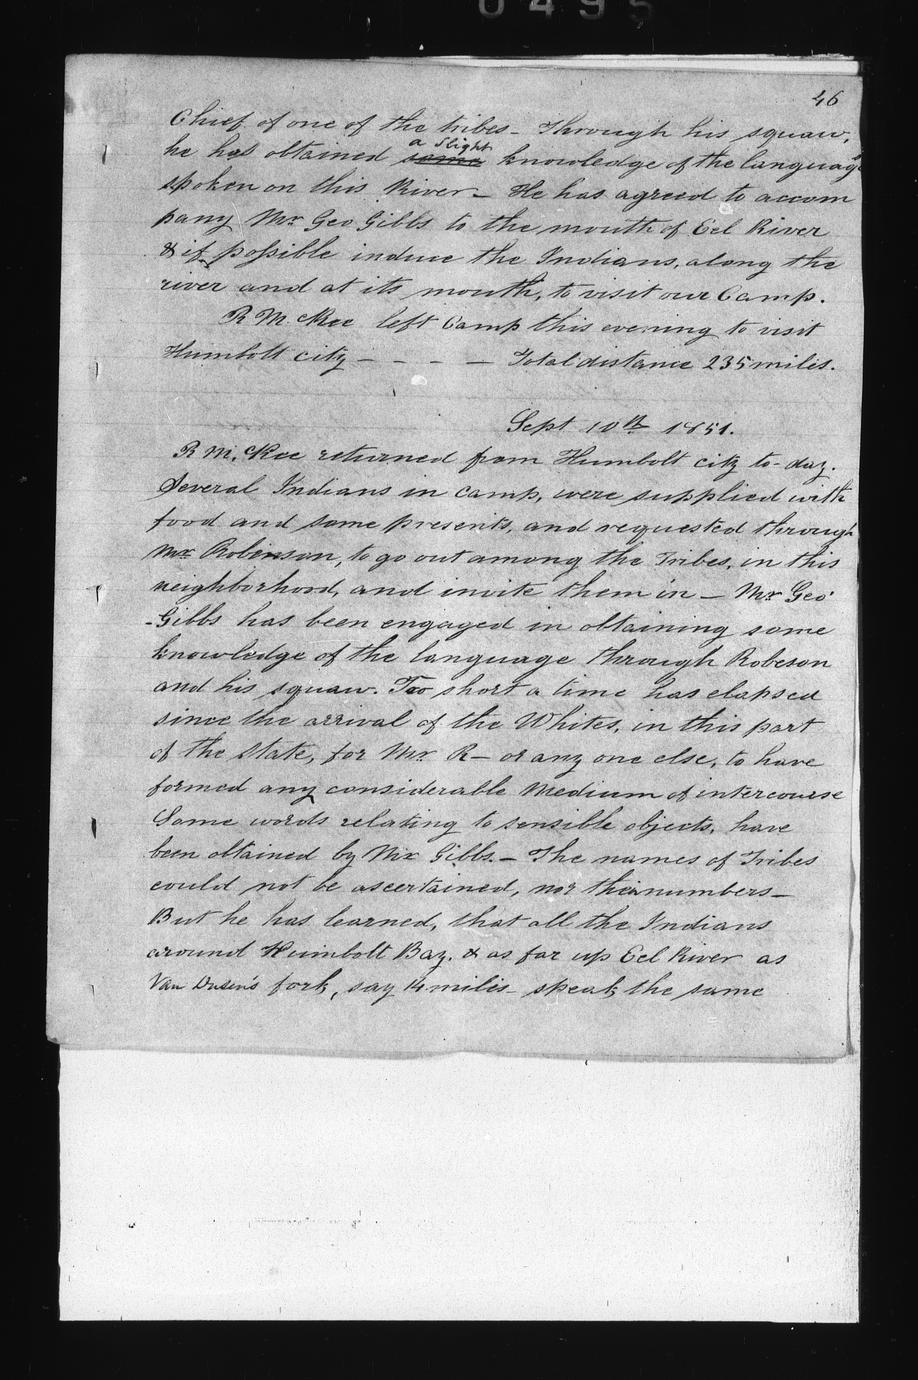 0495
46
Chief of one of the tribes - Through his squaw,
he has obtained ~~some~~ a slight knowledge of the language
spoken on this River - He has agreed to accom
pany Mr Geo Gibbs to the mouth of Eel River
& if possible induce the Indians, along the
river and at its mouth, to visit our Camp.
R McKee left Camp this evening to visit
Humbolt city - - - - - Total distance 235 miles.
Sept 10th 1851.
R McKee returned from Humbolt city to-day.
Several Indians in camp, were supplied with
food and some presents, and requested through
Mr Robinson, to go out among the Tribes, in this
neighborhood, and invite them in - Mr Geo
Gibbs has been engaged in obtaining some
knowledge of the language through Robeson
and his squaw. Too short a time has elapsed
since the arrival of the Whites, in this part
of the State, for Mr R- or any one else, to have
formed any considerable Medium of intercourse
Some words relating to sensible objects, have
been obtained by Mr Gibbs. - The names of Tribes
could not be ascertained, nor their numbers -
But he has learned, that all the Indians
around Humbolt Bay. & as far up Eel River as
Van Dusen's fork, say 14 miles - speak the same